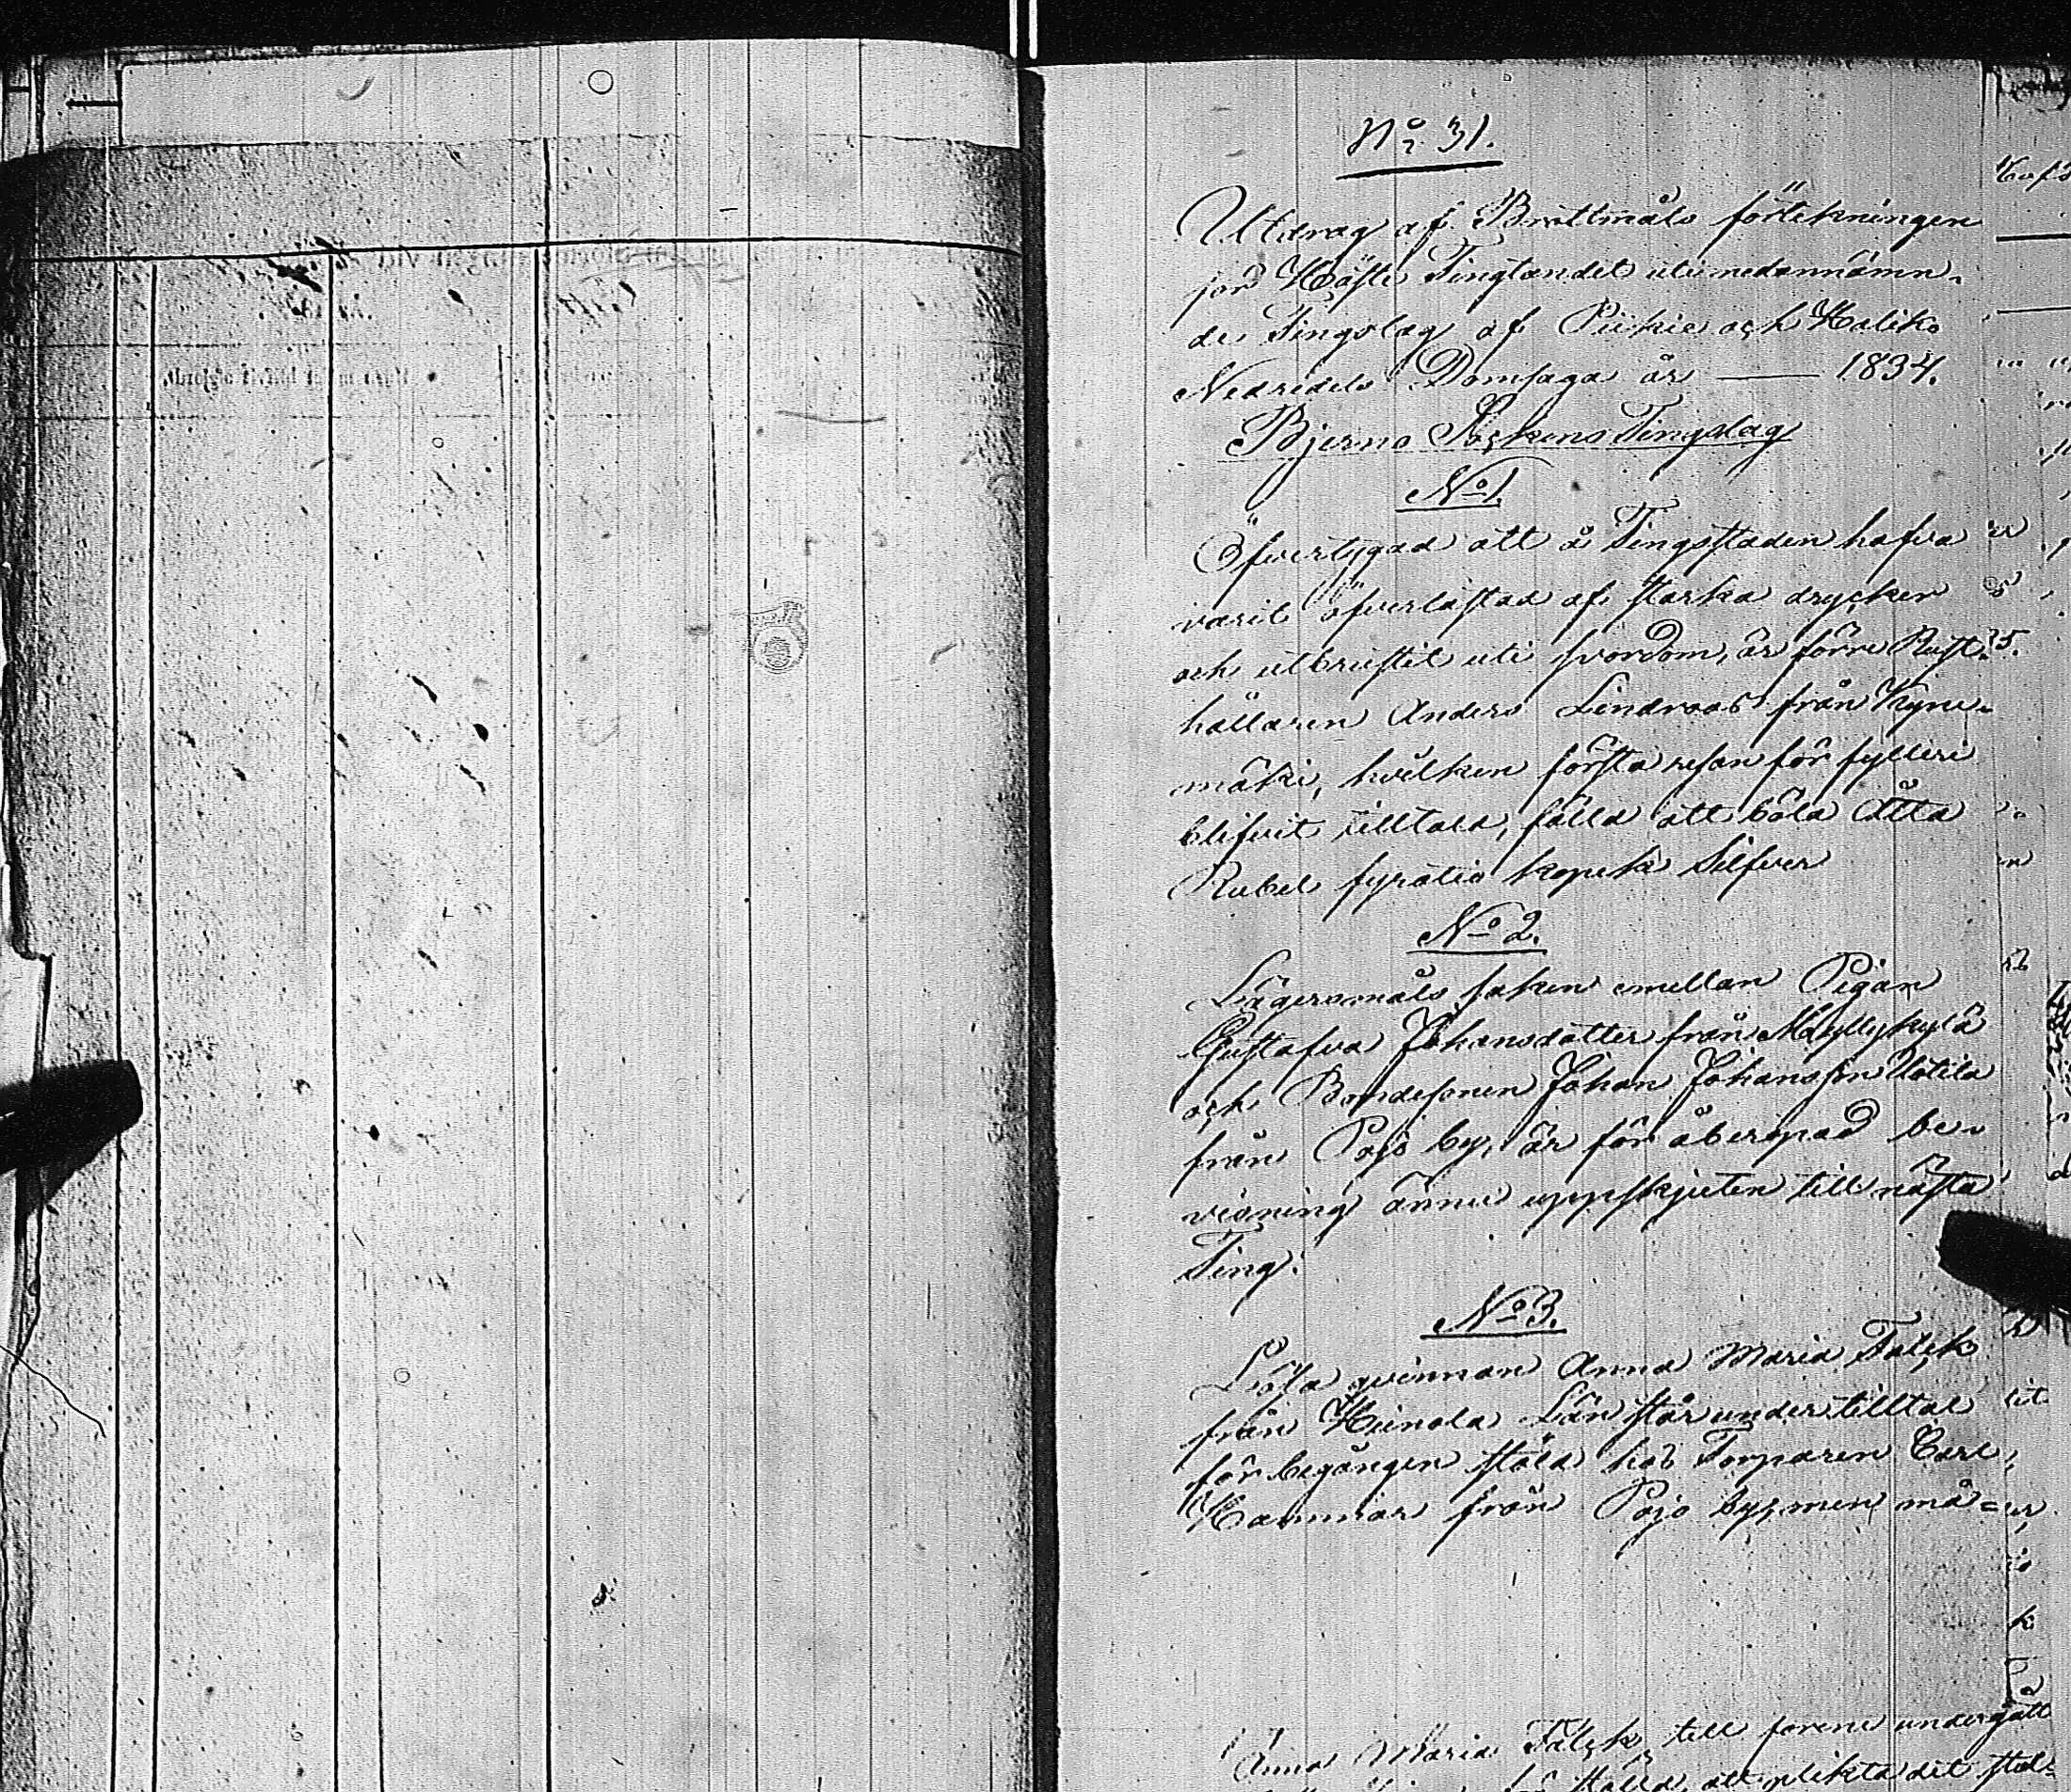 No 31.
Utdrag af Brottmåls förtekningen
för Höste Tingtandet uti nedannämn-
de Tingslag af Piikie och Haliko
Nedredels Domsaga år — 1834.
Bjerno Sockens Tingslag
No 1.
Öfvertygad att å Tingsstaden hafva
varit öfverlastad af starka drycker
och utbrustit uti svordom, är förre Rust-
hållaren Anders Lindroos från Kyrö-
mäki, hvilken första resan för fylleri
blifvit tilltald, fälld att böta Åtta
Rubel fyratio kopek Silfver
No 2.
Lägersmåls saken emellan Pigan
Gustafva Johansdotter från Myllykylä
och Bondesonen Johan Johansson Uotila
från Pojo by, är för åberopad be-
visning ännu uppskjuten till nästa
Ting.
No 3.
Lösa qvinnan Anna Maria Falck
från Heinola Län står under tilltal
för begången stöld hos Torparen Carl
från Pojo by, men må=
Anna Maria Falck till förene undergått
att plikta det stöl=